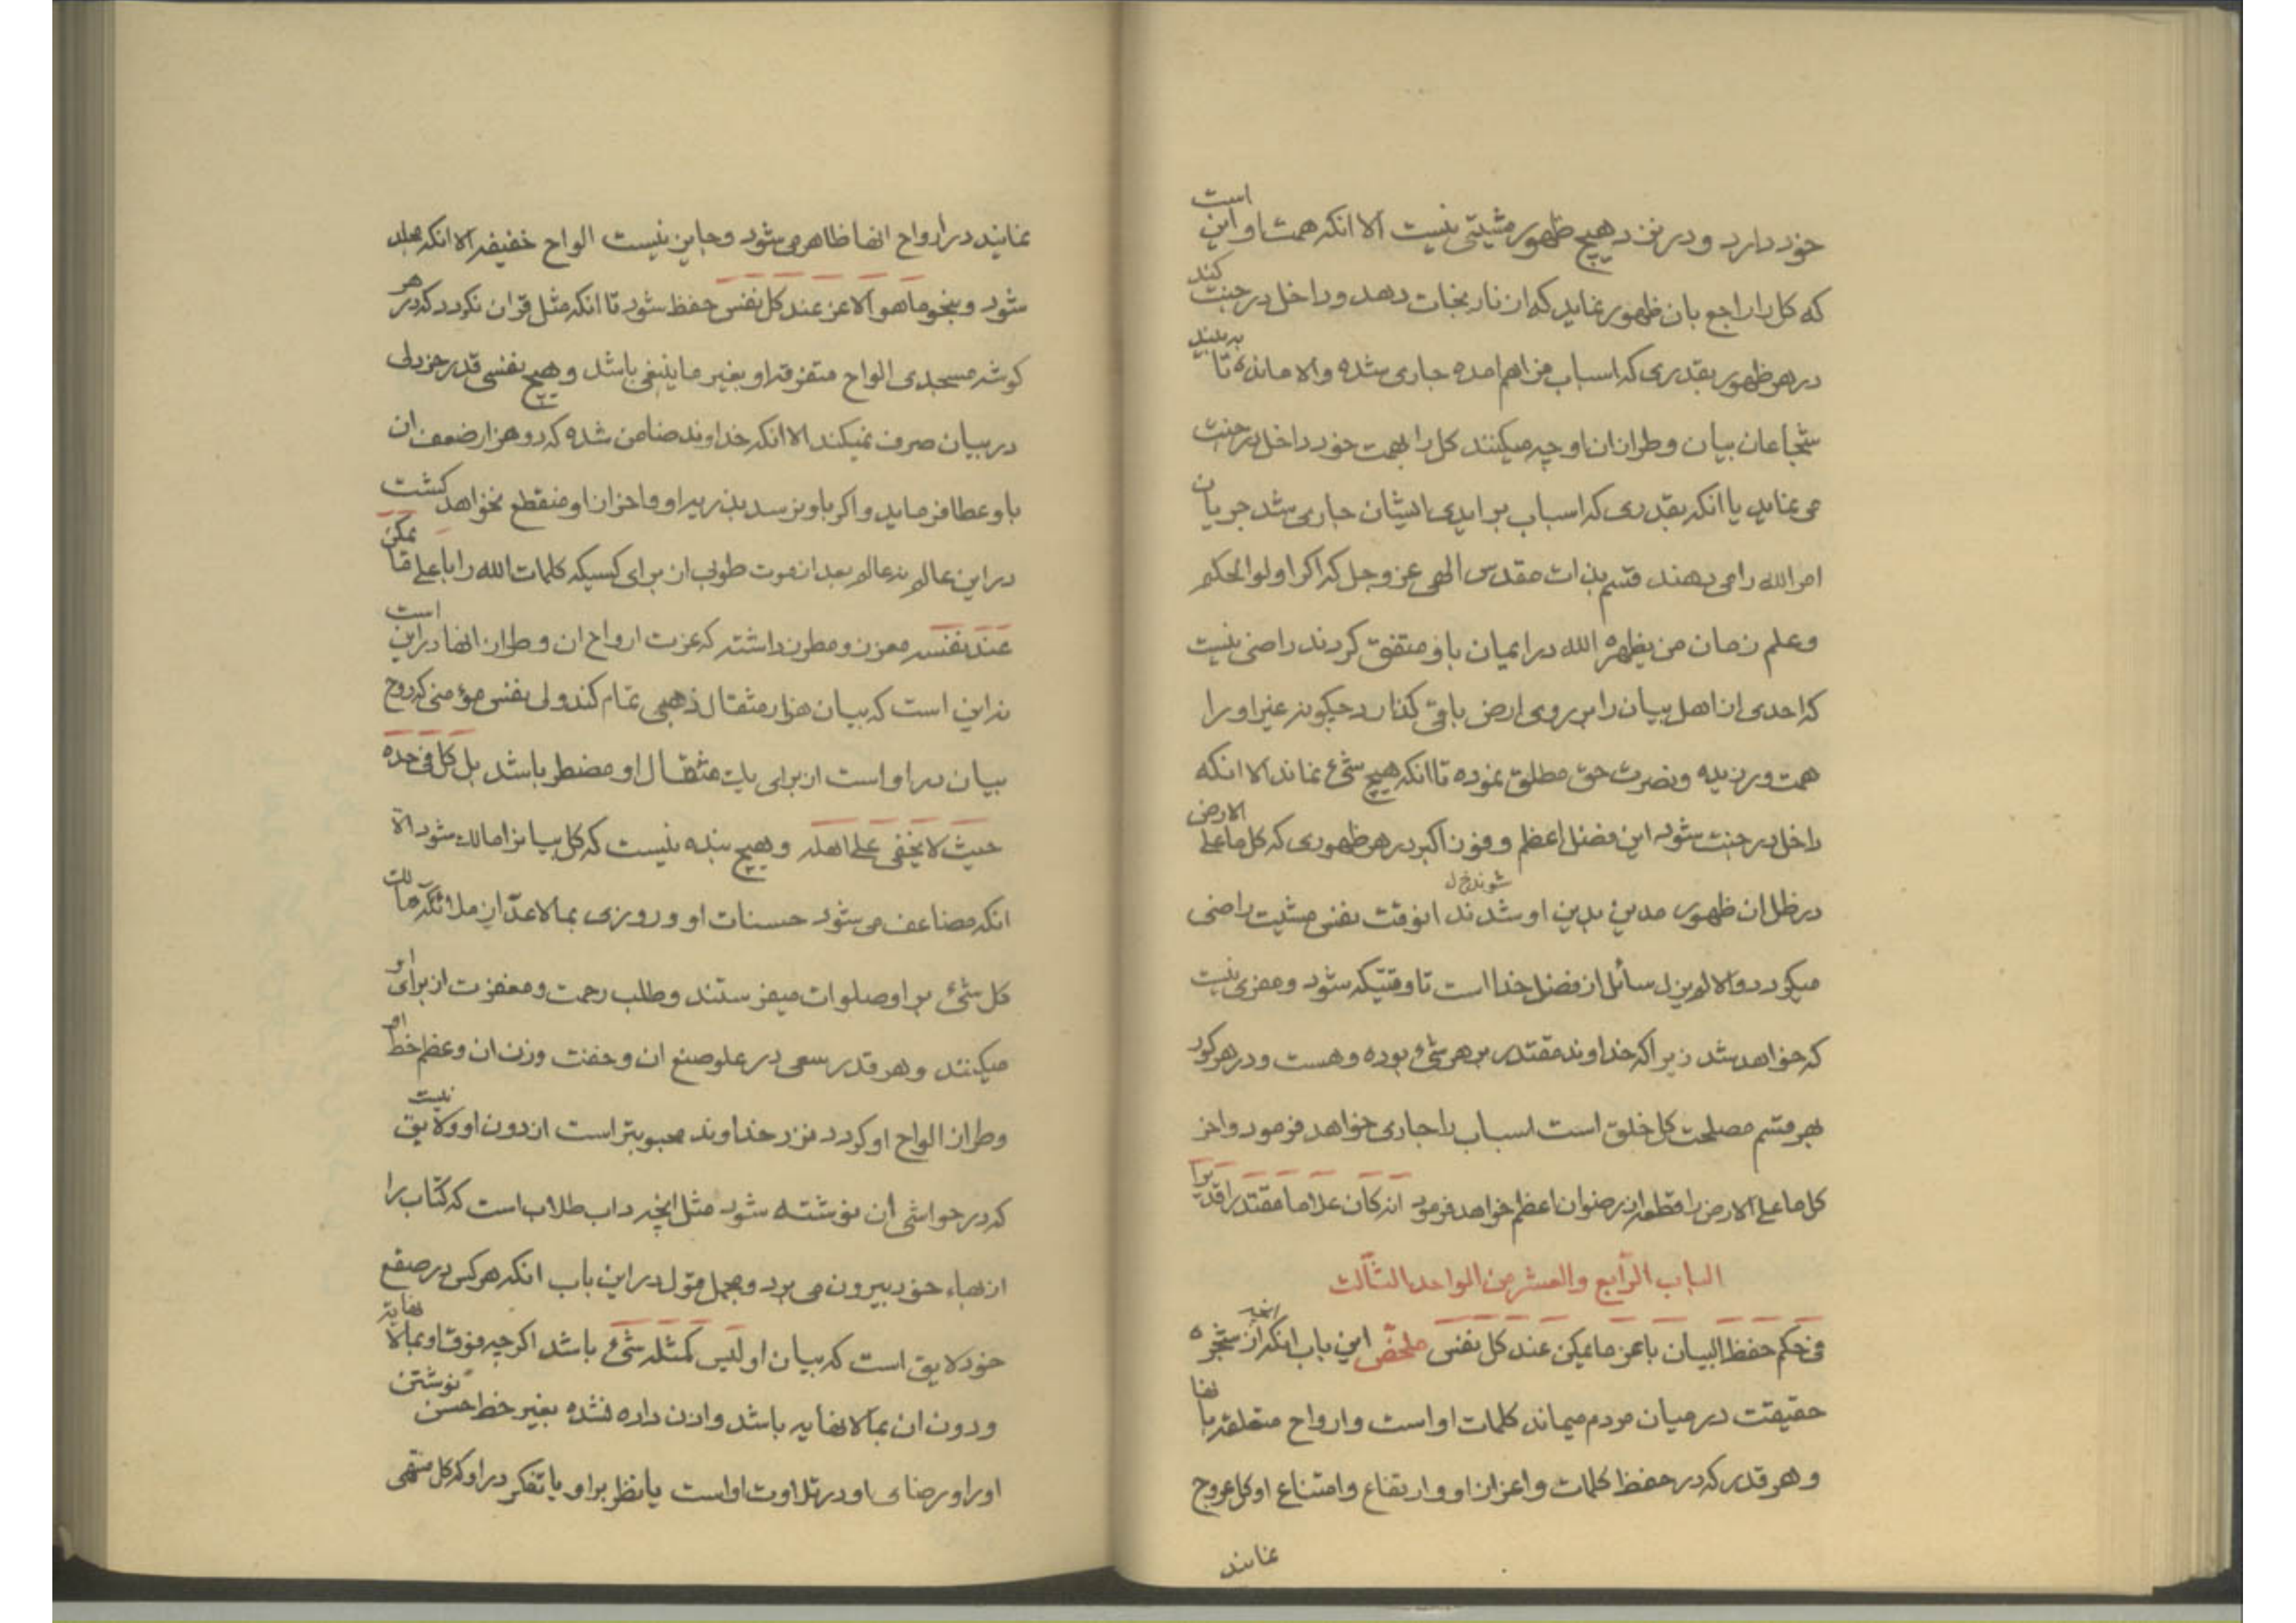 خود دارد و در نزد هیچ ظهور مشیتی نیست الا انکه همت او این است
که کل را راجع بان ظهور نماید که از نار نجات دهد و داخل در جنت کند
در هر ظهور بقدری که اسباب فراهم امده جاری شده والا مانده تا
شجاعان بیان و طرازان او چه میکنند کل را بهمت خود داخل در جنت
می نماید یا انکه بقدری که اسباب بر ایدی ایشان جاری شد جریان
امر الله را می دهند قسم بذات مقدس الهی عز و جل که اکر اولو الحکم
و علم زمان من یظهره الله در ایمان باو متفق کردند راضی نیست
که احدی از اهل بیان را بر روی ارض باقی کذارد چکونه غیر او را
همت ورزیده و نصرت حق مطلق نموده تا انکه هیچ شئ نماند الا انکه
داخل در جنت شود این فضل اعظم و فوز اکبر در هر ظهوری که کل ما علی الارض
در ظل ان ظهور مدین بدین او شدند انوقت نفس مشیت راضی
میکردد والا لم یزل سائل از فضل خدا است تا وقتیکه شود و مفری نیست
که خواهد شد زیرا که خداوند مقتدر بر هر شئ بوده و هست و در هر کور
بهر قسم مصلحت کل خلق است اسباب را جاری خواهد فرمود و اخر
کل ما علی الارض را قطعه از رضوان اعظم خواهد فرمود انه کان علاما مقتدرا قدیرا
الباب الرابع والعشر من الواحد الثالث
فی حکم حفظ البیان باعز ما یمکن عند کل نفس ملخص این باب انکه انچه از شجره
حقیقت در میان مردم میماند کلمات او است و ارواح متعلقه بانها
و هر قدر که در حفظ کلمات و اعزاز او و ارتفاع و امتناع او کل عروج
نمایند
نمایند در ارواح انها ظاهر می شود و جایز نیست الواح خفیفه الا انکه مجلد
شود و بنحو ما هو الاعز عند کل نفس حفظ شود تا انکه مثل قران نکردد که در هر
کوشه مسجدی الواح متفرقه او بغیر ما ینبغی باشد و هیچ نفسی قدر خردلی
در بیان صرف نمیکند الا انکه خداوند ضامن شده که دو هزار ضعف ان
باو عطا فرماید و اکر باو نرسد بذریه او و اخزان او منقطع نخواهد کشت
در این عالم نه عالم بعد از موت طوبی از برای کسیکه کلمات الله را باعلی ما یمکن
عند نفسه معزز و مطرز داشته که عزت ارواح ان و طراز انها در این است
نه این است که بیان هزار مثقال ذهبی تمام کند ولی نفس مؤمنی که روح
بیان در او است از برای یک مثقال او مضطر باشد بل کل فی حده
حیث لا یخفی علی اهله و هیچ بنده نیست که کل بیانرا مالک شود الا
انکه مضاعف می شود حسنات او و روزی بمالا عد از ملائکه مالک
کل شئ بر او صلوات میفرستند و طلب رحمت و مغفرت از برای او
میکنند و هر قدر سعی در علو صنع ان و خفت وزن ان و عظم خط او
و طراز الواح او کردد نزد خداوند محبوبتر است از دون او و لایق نیست
که در حواشی ان نوشته شود مثل انچه داب طلاب است که کتاب را
از بهاء خود بیرون می برد و مجمل قول در این باب انکه هر کس در صقع
خود لایق است که بیان او لیس کمثله شئ باشد اکر چه فوق او بمالا نهایة
و دون ان بمالا نهایه باشد و اذن داده نشده بغیر خط حسن نوشتن
او را و رضای او در تلاوت او است یا نظر بر او یا تفکر در او که کل منتهی